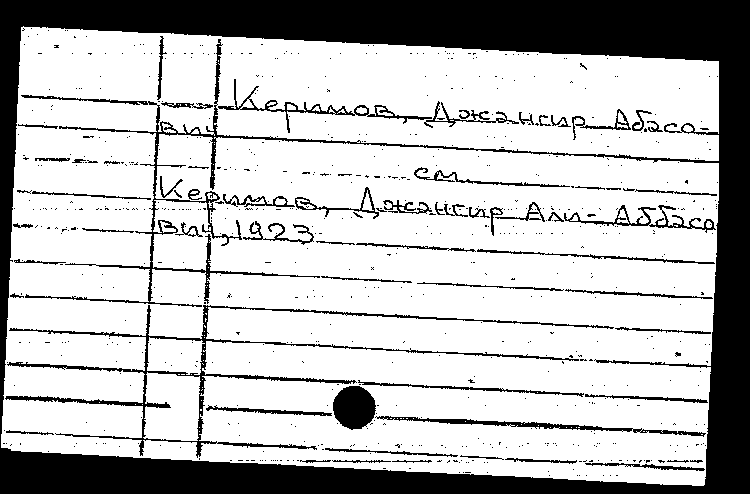 Керимов, Джангир Абасо-
вич
см.
Керимов, Джангир Али-Аббасо
вич, 1923